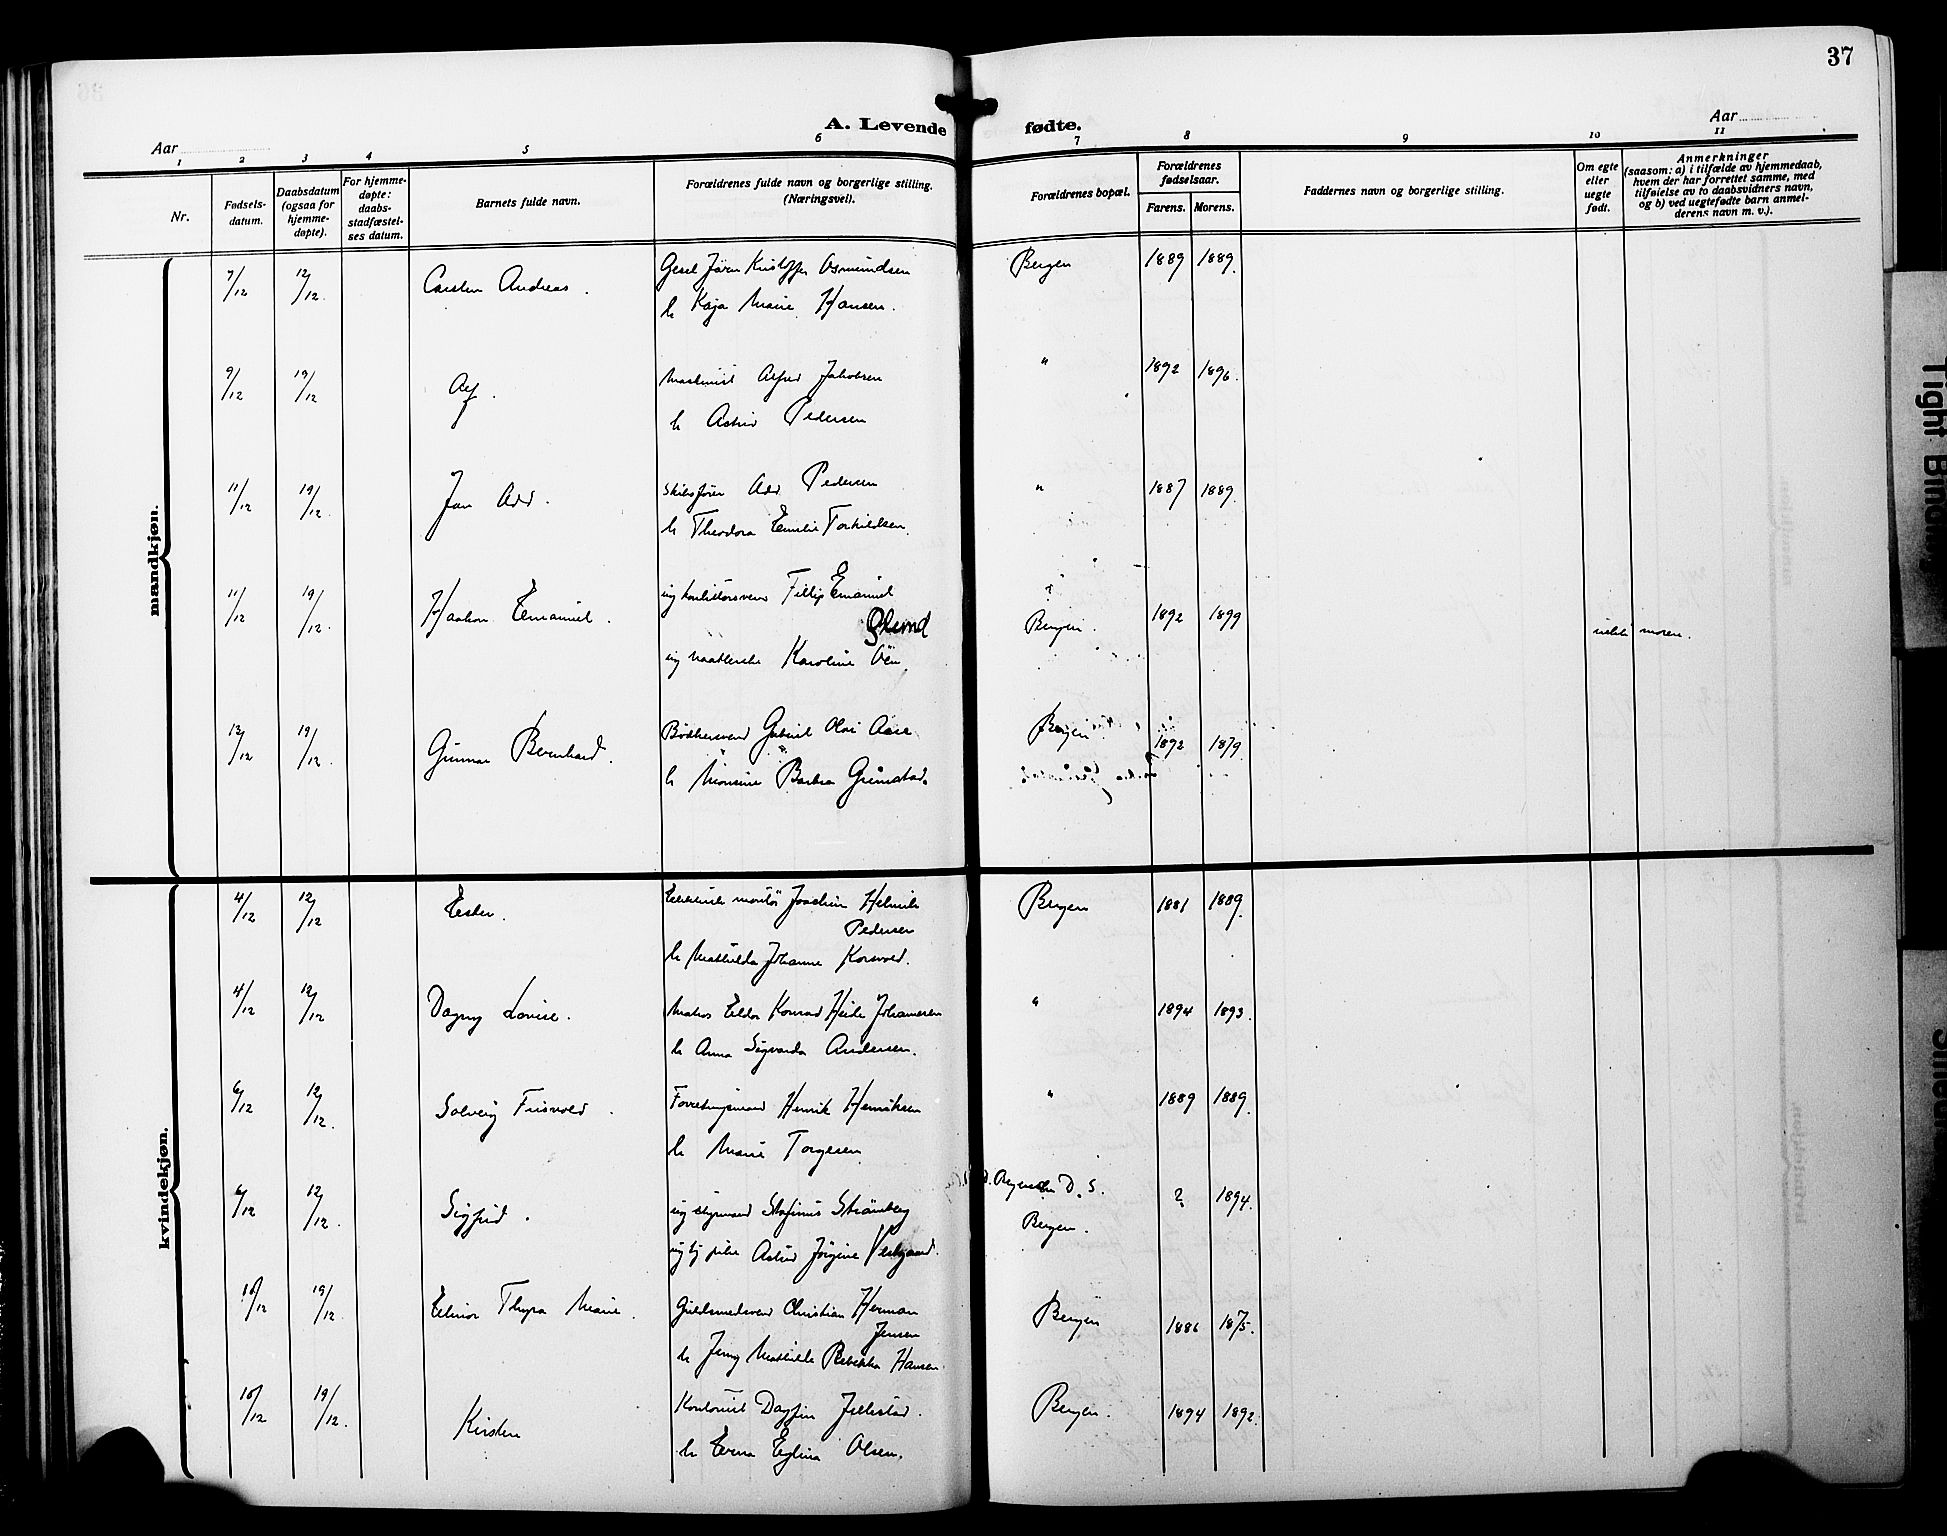 37
A. Levende fødte.
Aar
Aar
1 2 3 4 5 6 7 8 9 10 11
Nr.
Fødsels-
datum.
Daabsdatum
(ogsaa for
hjemme-
døpte).
For hjemme-
døpte:
daabs-
stadfæstel-
ses datum.
Barnets fulde navn.
Forældrenes fulde navn og borgerlige stilling.
(Næringsvei).
Forældrenes bopæl.
Forældrenes
fødselsaar.
Farens. Morens.
Faddernes navn og borgerlige stilling.
Om egte
eller
uegte
født.
Anmerkninger
(saasom: a) i tilfælde av hjemmedaab,
hvem der har forrettet samme, med
tilføielse av to daabsvidners navn,
og b) ved uegtefødte barn anmel-
derens navn m. v.).
mandkjøn.
7/12 12/12. Carsten Andreas. Jørn Kristoffer Osmundsen Bergen 1889 1889.
h Kaja Marie Hansen.
9/12 19/12 Alf. Maskinist Alfred Jakobsen " 1892 1896.
h Astrid Pedersen
11/12 19/12. Jan Odd. Skibsfører Odd Pedersen " 1887 1889.
h Theodora Emilie Torkildsen.
11/12 19/12. Haakon Emanuel. ug konditorsvend Fillip Emanuel " 1892 1899
Ølund Bergen. moren.
ug Karoline Øen.
12/12 19/12. Gunnar Bernhard. Bødkersvend Gabriel Olai Aase Bergen 1892 1879.
h Monsine Barbra Grimstad.
kvindekjøn.
4/12 12/12 Ester. montør Joachim Helmik Bergen 1881 1889.
Pedersen
h Mathilda Johanne Korsvold.
4/12 12/12 Dagny Lovise. Matros Eldor Konrad Heide Johannesen " 1894 1893.
h Anna Sigvarda Andersen.
6/12 12/12. Solveig Frisvold. Forretningsmand Henrik Henriksen " 1889 1889.
h Marie Torgersen
6/12 12/12. Sigfrid. ug styrmand Stafinus Strömberg D. S. ? 1894.
ug Astrid Jørgine Bergen.
10/12 19/12. Elinor Thyra Marie. Guldsmedsvend Christian Herman Bergen 1886 1875.
Jensen
h Jenny Mathilde Rebekka Hansen
10/12 19/12. Kirsten Kontorist Dagfin Jellestad. Bergen. 1894 1892.
h Erna Eglina Olsen.
Tight Binding